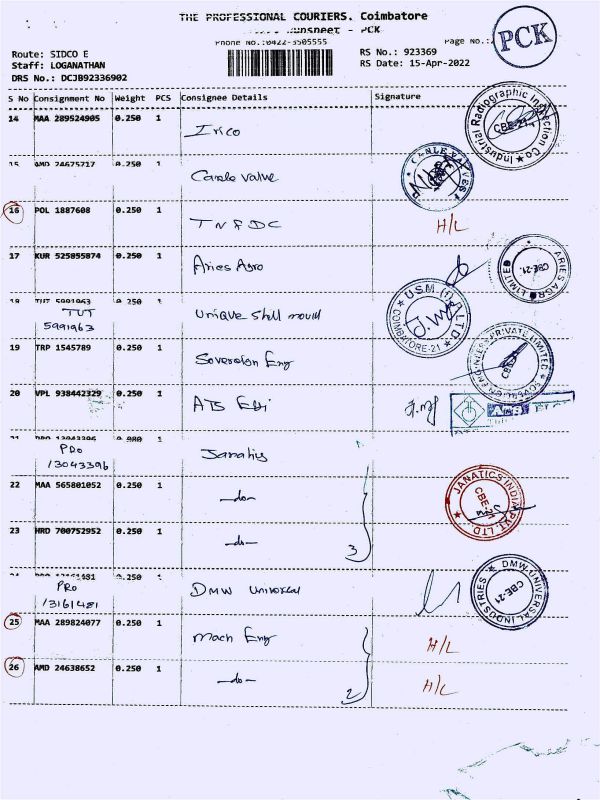 THE PROFESSIONAL COURIERS. Coimbatore
PCK
Phone No.:0422-3505555
Page No.:
Route: SIDCO E
RS No.: 923369
Staff: LOGANATHAN
RS Date: 15-Apr-2022
DRS No.: DCJB92336902
S No Consignment No Weight PCS Consignee Details Signature
14 MAA 289524905 0.250 1 Irico
INDUSTRIAL Radiographic Inspection Co CBE-21
15 AMD 24675717 0.250 1 Canle valve
CANLE VALVES
16 POL 1887608 0.250 1 TNFDC H/L
17 KUR 525855874 0.250 1 Aries Agro
ARIES AGRO LIMITED CBE-21
18 TUT 5991963 0.250 1 Unique Shell mould
TUT
5991963
U.S.M. (I) LTD COIMBATORE-21
19 TRP 1545789 0.250 1 Sovereign Eng
SOVEREIGN ENGINEERS PRIVATE LIMITED CBE
20 VPL 938442329 0.250 1
21 PRO 13043396 0.980 1 Janatics
PRO
13043396
22 MAA 565801052 0.250 1 -do-
JANATICS INDIA PVT. LTD. CBE-21
23 HRD 700752952 0.250 1 -do- 3
24 PRO 13161481 0.250 1 DMW Universal
PRO
13161481
DMW UNIVERSAL INDUSTRIES CBE-21
25 MAA 289824077 0.250 1 Mach Eng H/L
26 AMD 24638652 0.250 1 -do- 2 H/L